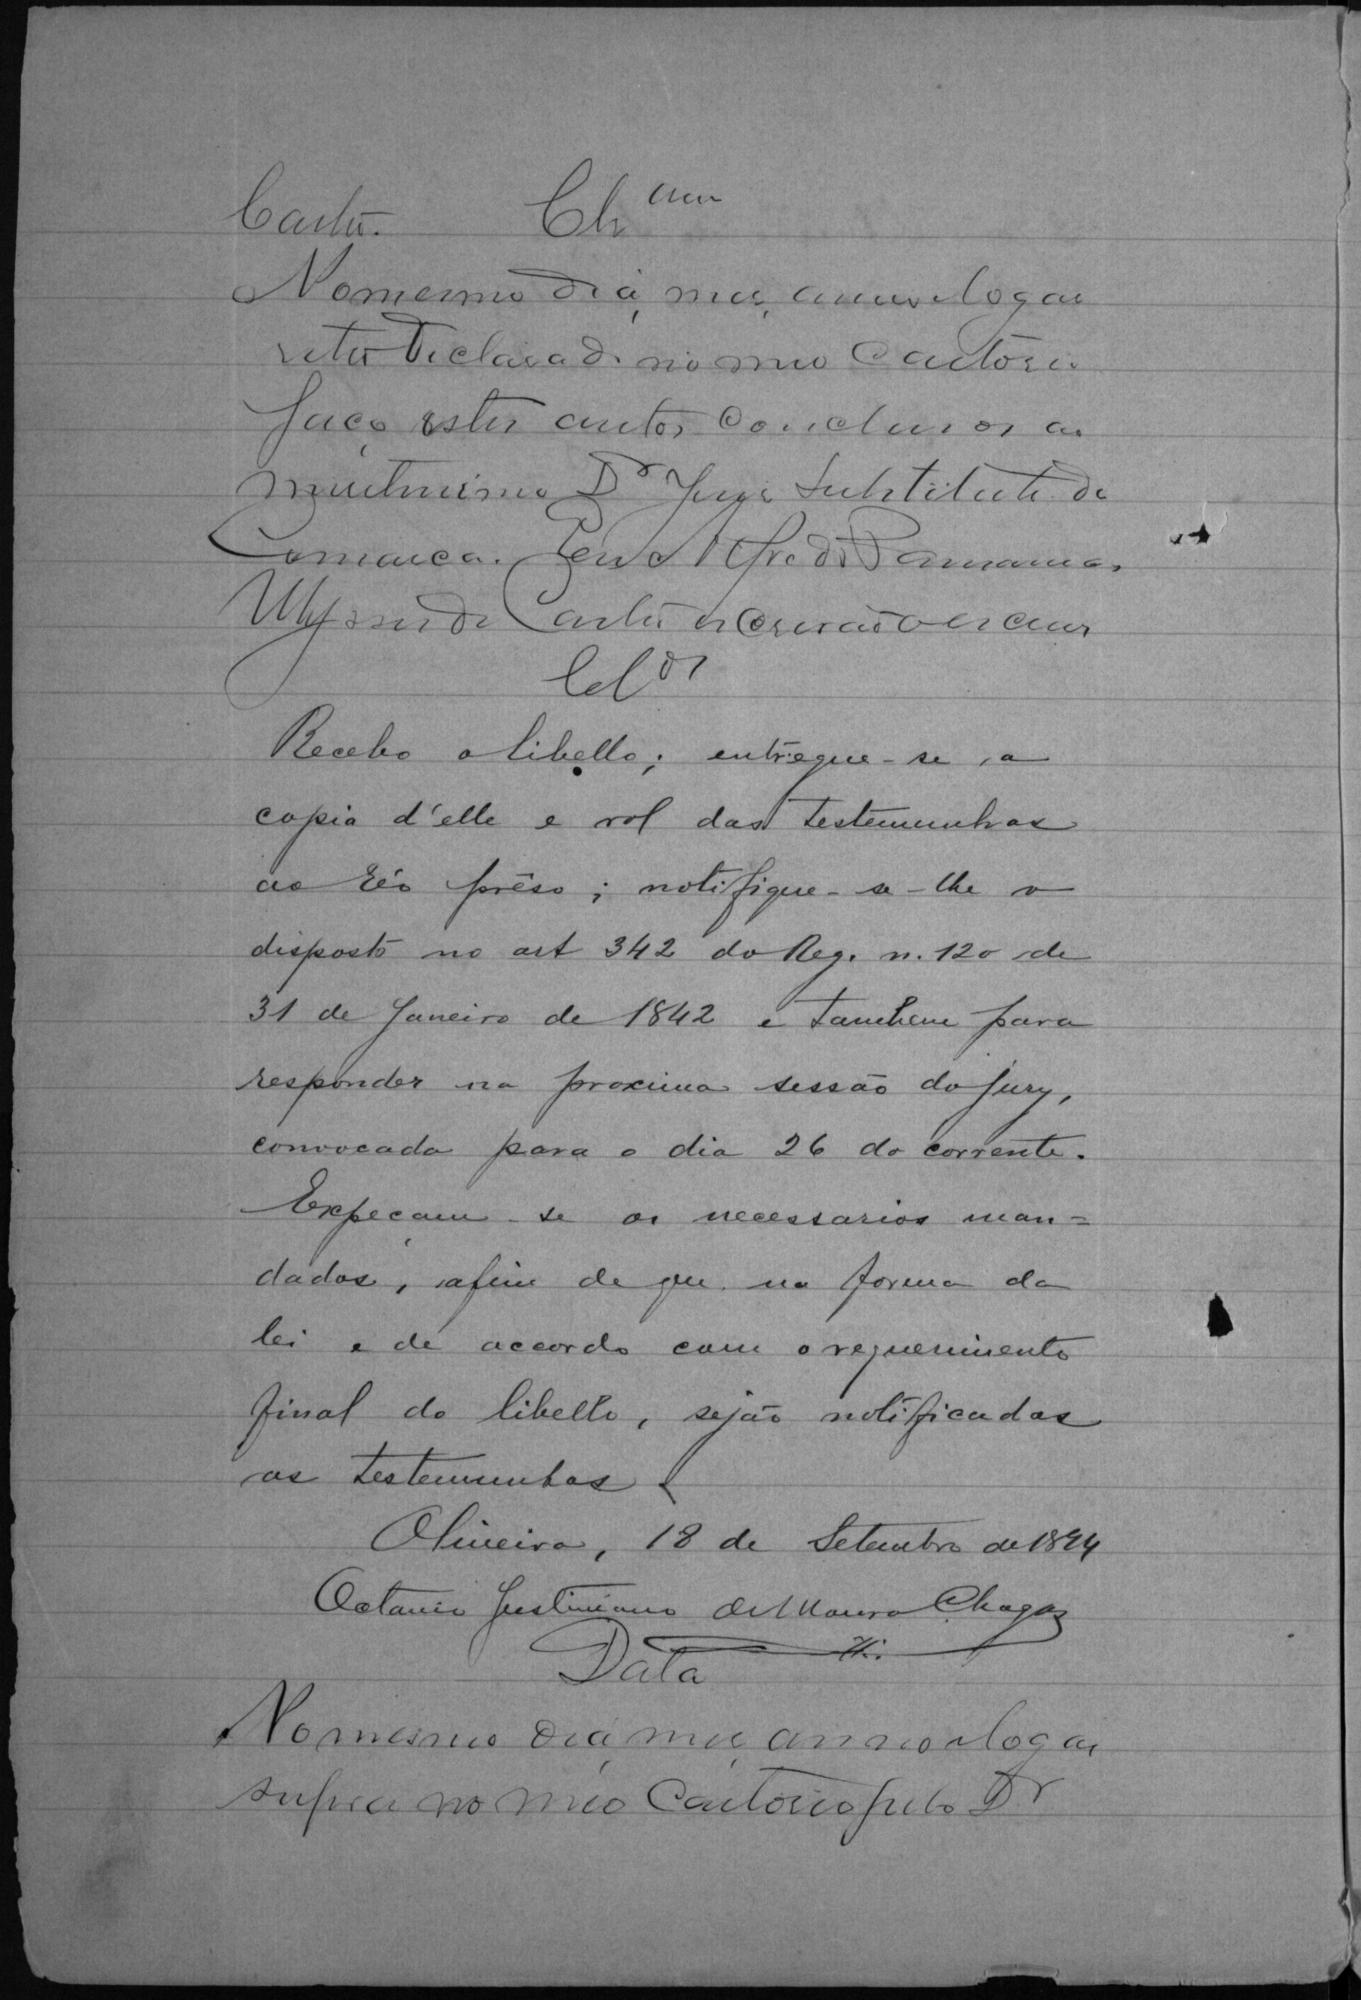 Castro. Cls
No mesmo dia, mez, anno e logar
retro declarado no meo Cartorio
faço estes autos conclusos ao
meretissimo Dr Juiz Substituto da
Comarca. Eu Alfredo
Ulysses de Castro escrivão o escrevi
Clos
Recebo o libello; entregue-se a
copia d'elle e rol das testemunhas
ao réo prêso; notifique-se-lhe o
disposto no art 342 do Reg. n. 120 de
31 de Janeiro de 1842 e tambem para
responder na proxima sessão do jury,
convocada para o dia 26 do corrente.
Expeçam-se os necessarios man=
dados, afim de que na forma da
lei e de accordo com o requerimento
final do libello, sejão notificadas
as testemunhas.
Oliveira, 18 de Setembro de 1894
Octavio Justiniano de Moura Chagas
Data
No mesmo dia, mez, anno e logar
supra no meo Cartorio pelo Dr